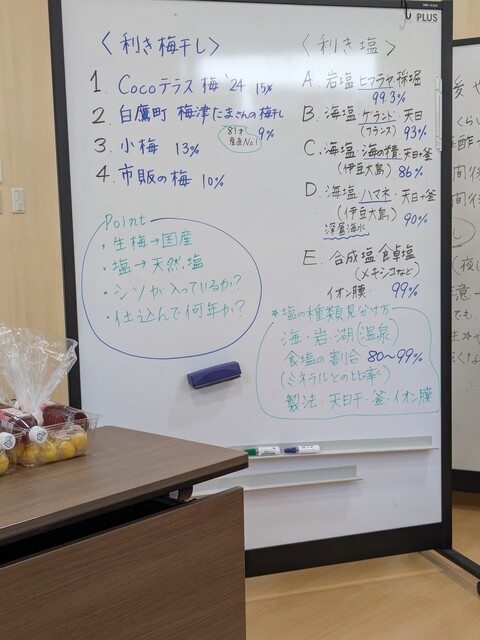 PLUS
〈利き梅干し〉
1. Cocoテラス 梅 '24 15%
2. 白鷹町 梅津たまさんの梅干し
81才
産直No.1
9%
3. 小梅 13%
4. 市販の梅 10%
Point
・生梅→国産
・塩→天然塩
・シソが入っているか?
・仕込んで何年か?
〈利き塩〉
A. 岩塩 ヒマラヤ 採堀
99.3%
B. 海塩 ゲランド・天日
(フランス) 93%
C. 海塩 海の精・天日+釜
(伊豆大島) 86%
D. 海塩 ハマネ・天日+釜
(伊豆大島) 90%
深層海水
E. 合成塩 食卓塩
(メキシコなど)
イオン膜 99%
*塩の種類見分け方
海・岩・湖(温泉)
食塩の割合 80~99%
(ミネラルとの比率)
製法・天日干・釜・イオン膜